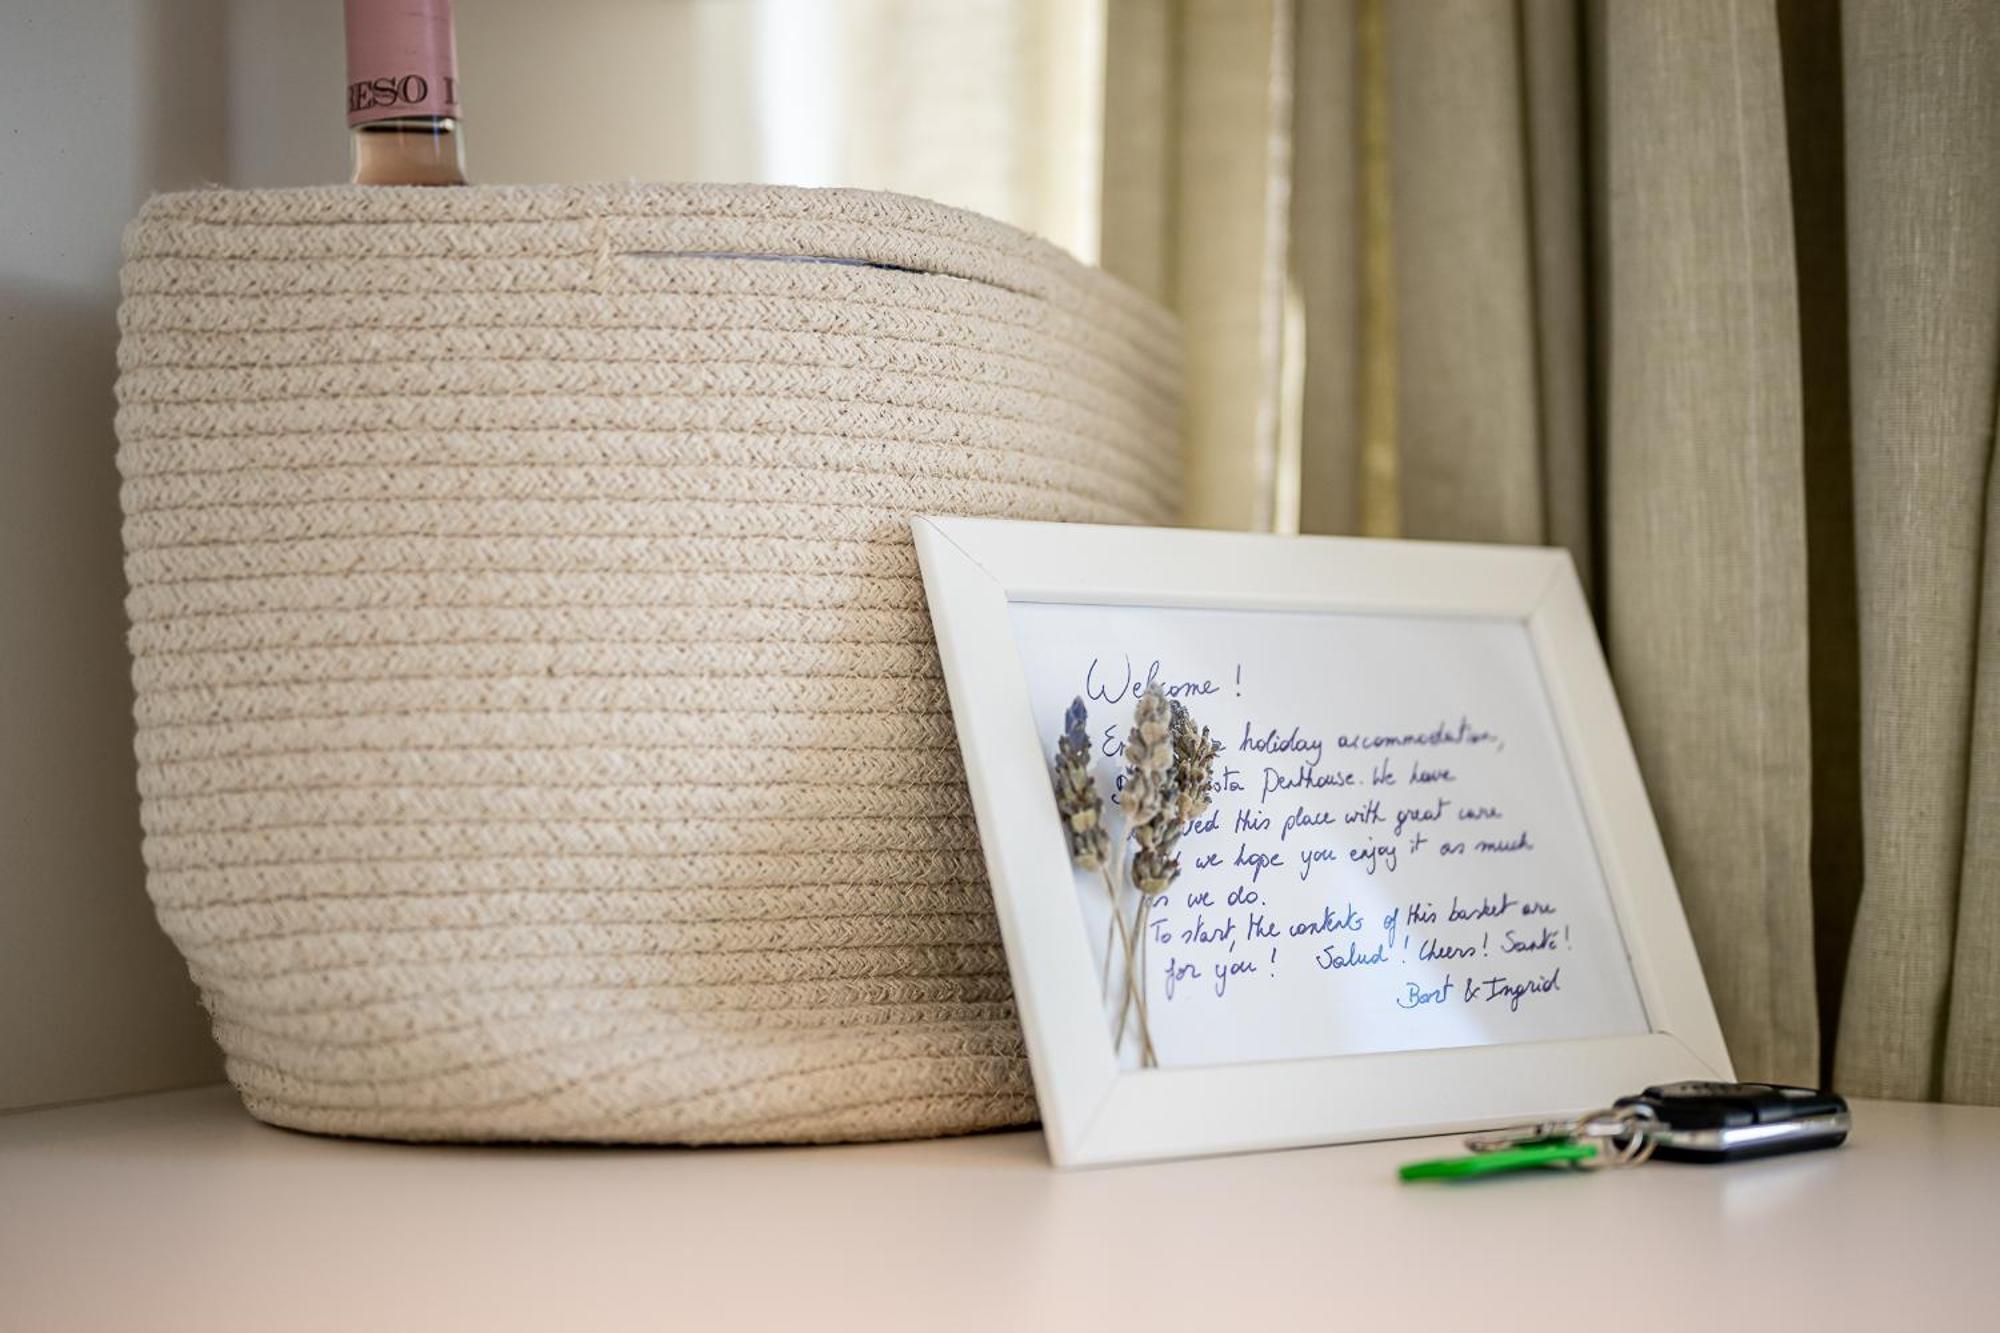 ESO
Welcome!
holiday accommodation,
Penthouse. We have
this place with great care
we hope you enjoy it as much
as we do.
To start, the contents of this basket are
for you! Salud! Cheers! Santé!
Bart & Ingrid